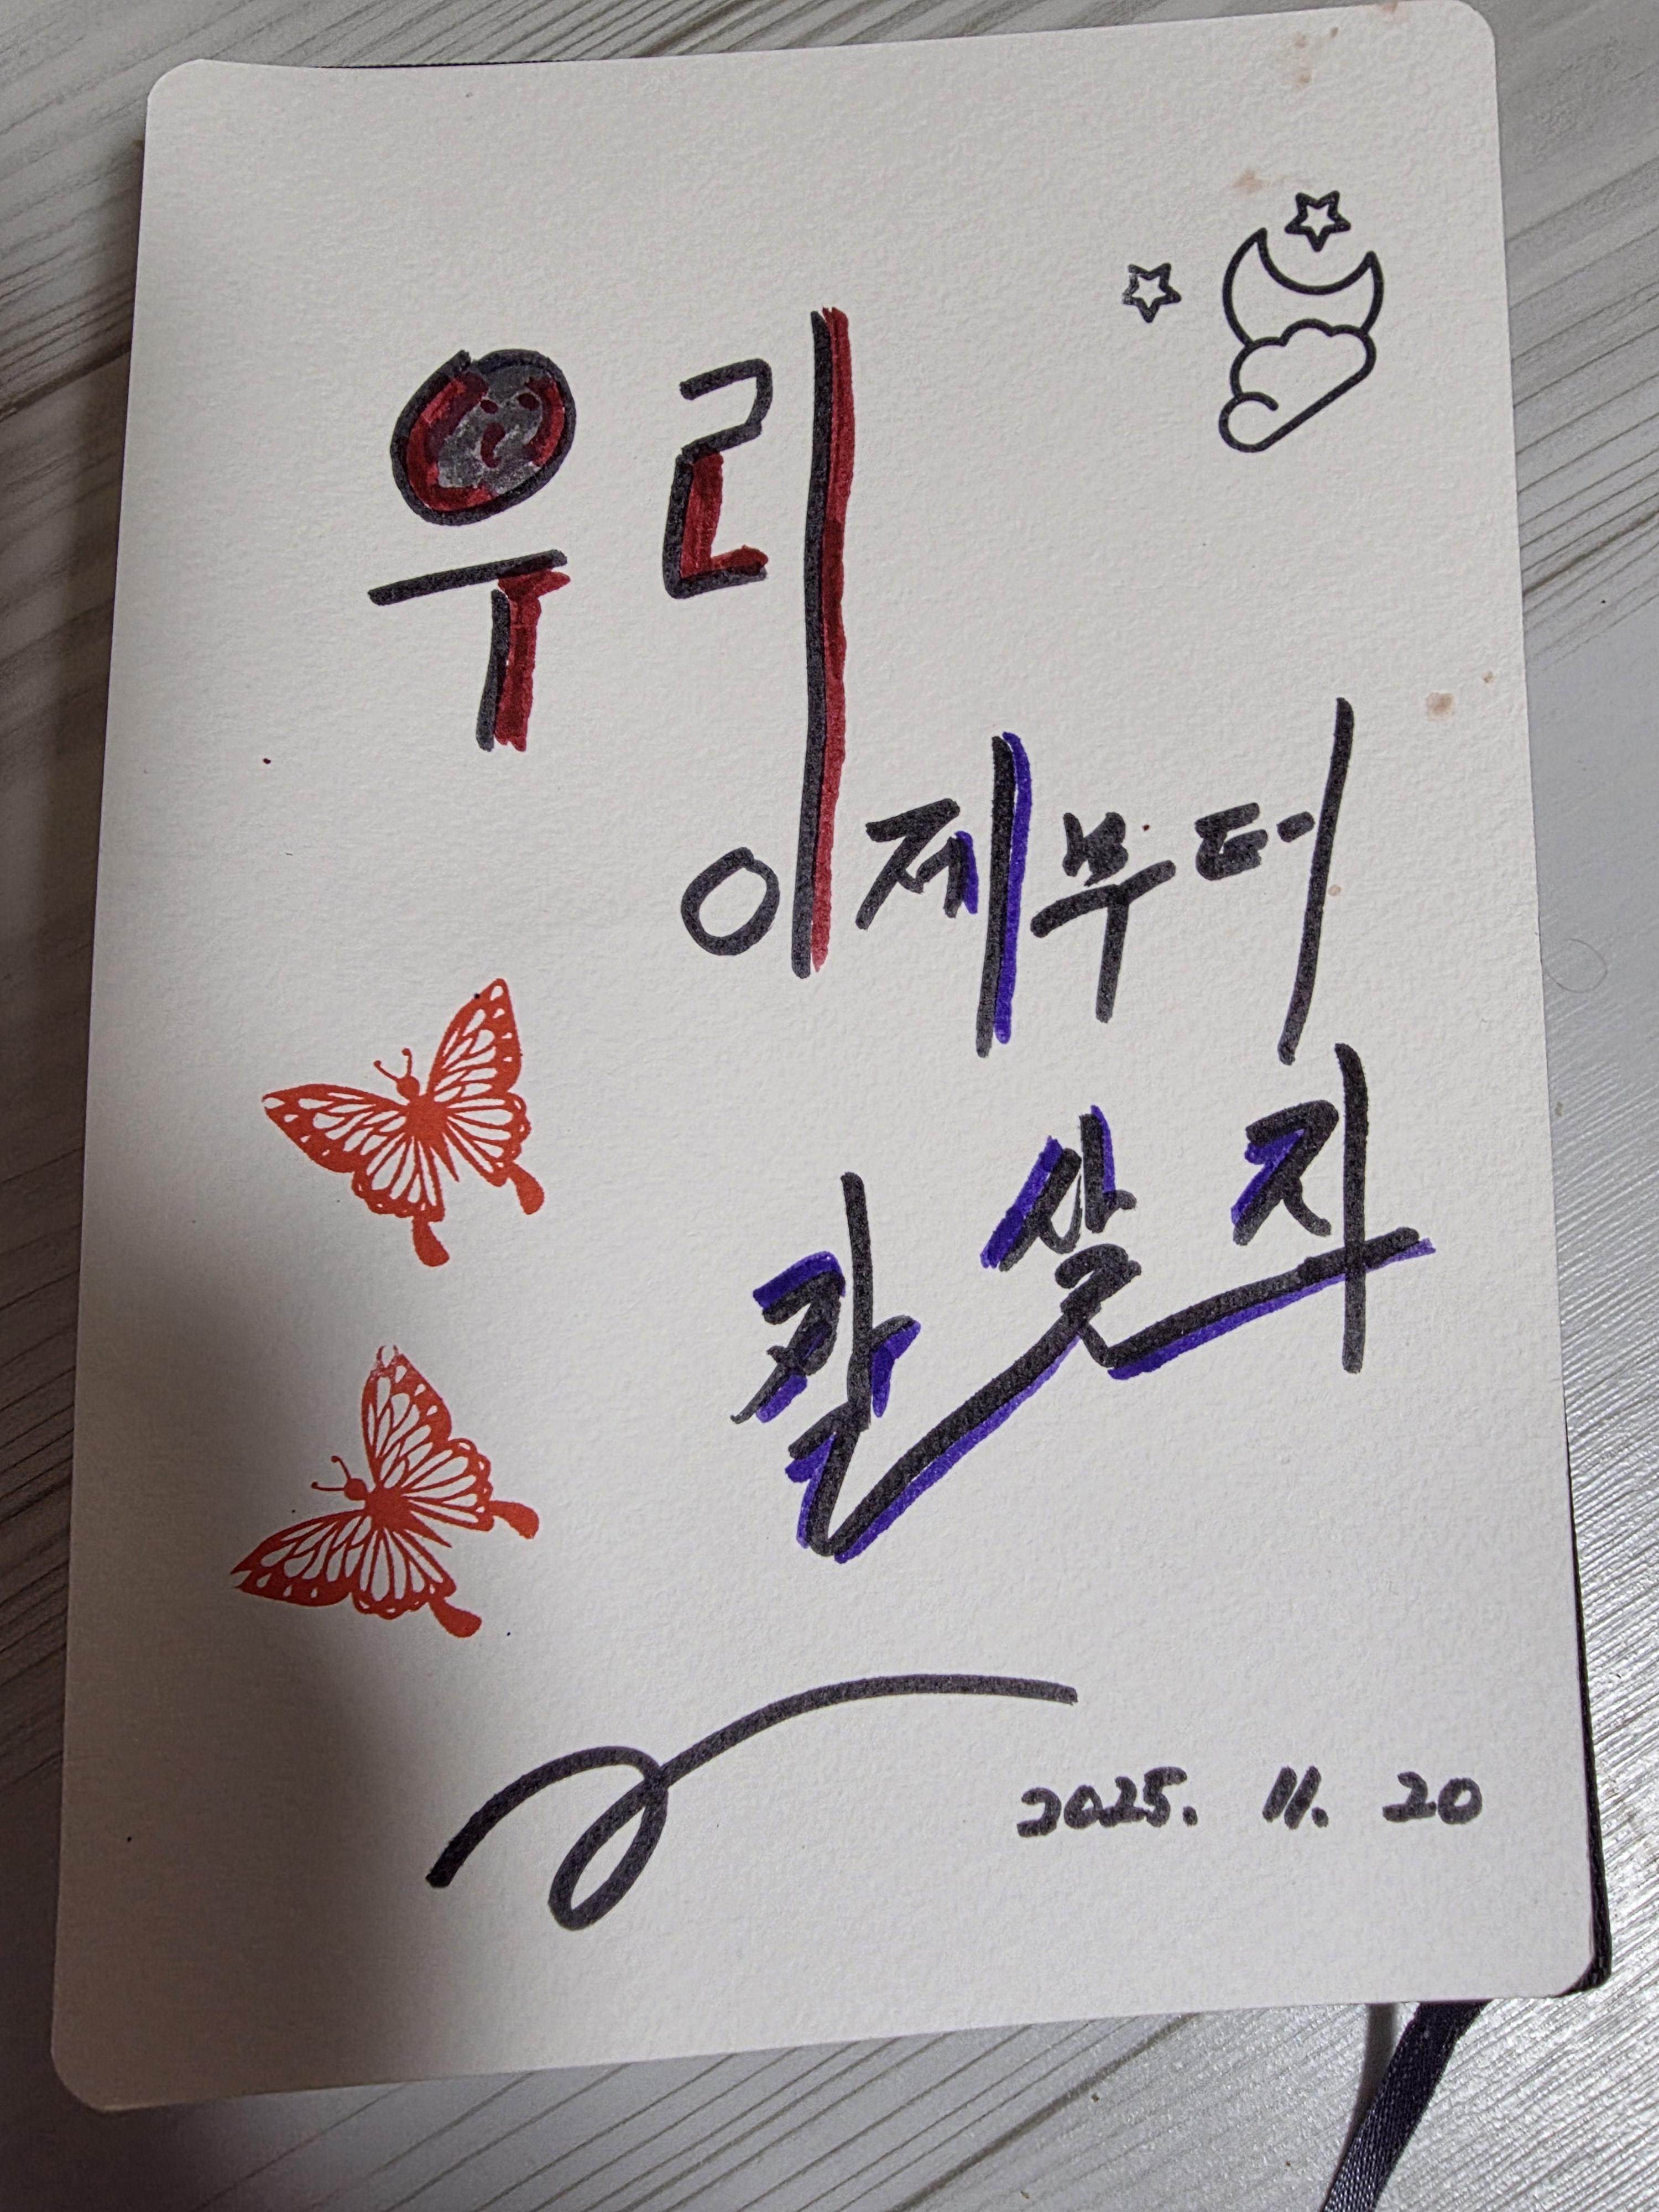 우리
이제부터
잘 살자
2025. 11. 20